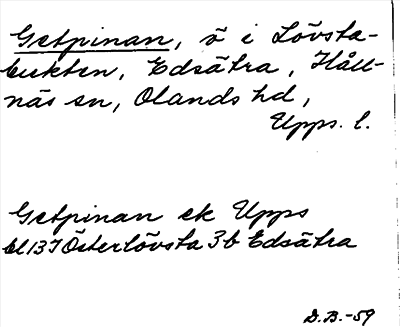 Getpinan, ö i Lövsta-
bukten, Edsätra, Håll-
näs sn, Olands hd,
Upps. l.
Getpinan ek Upps
bl 137 Österlövsta 3b Edsätra
D.B.-59